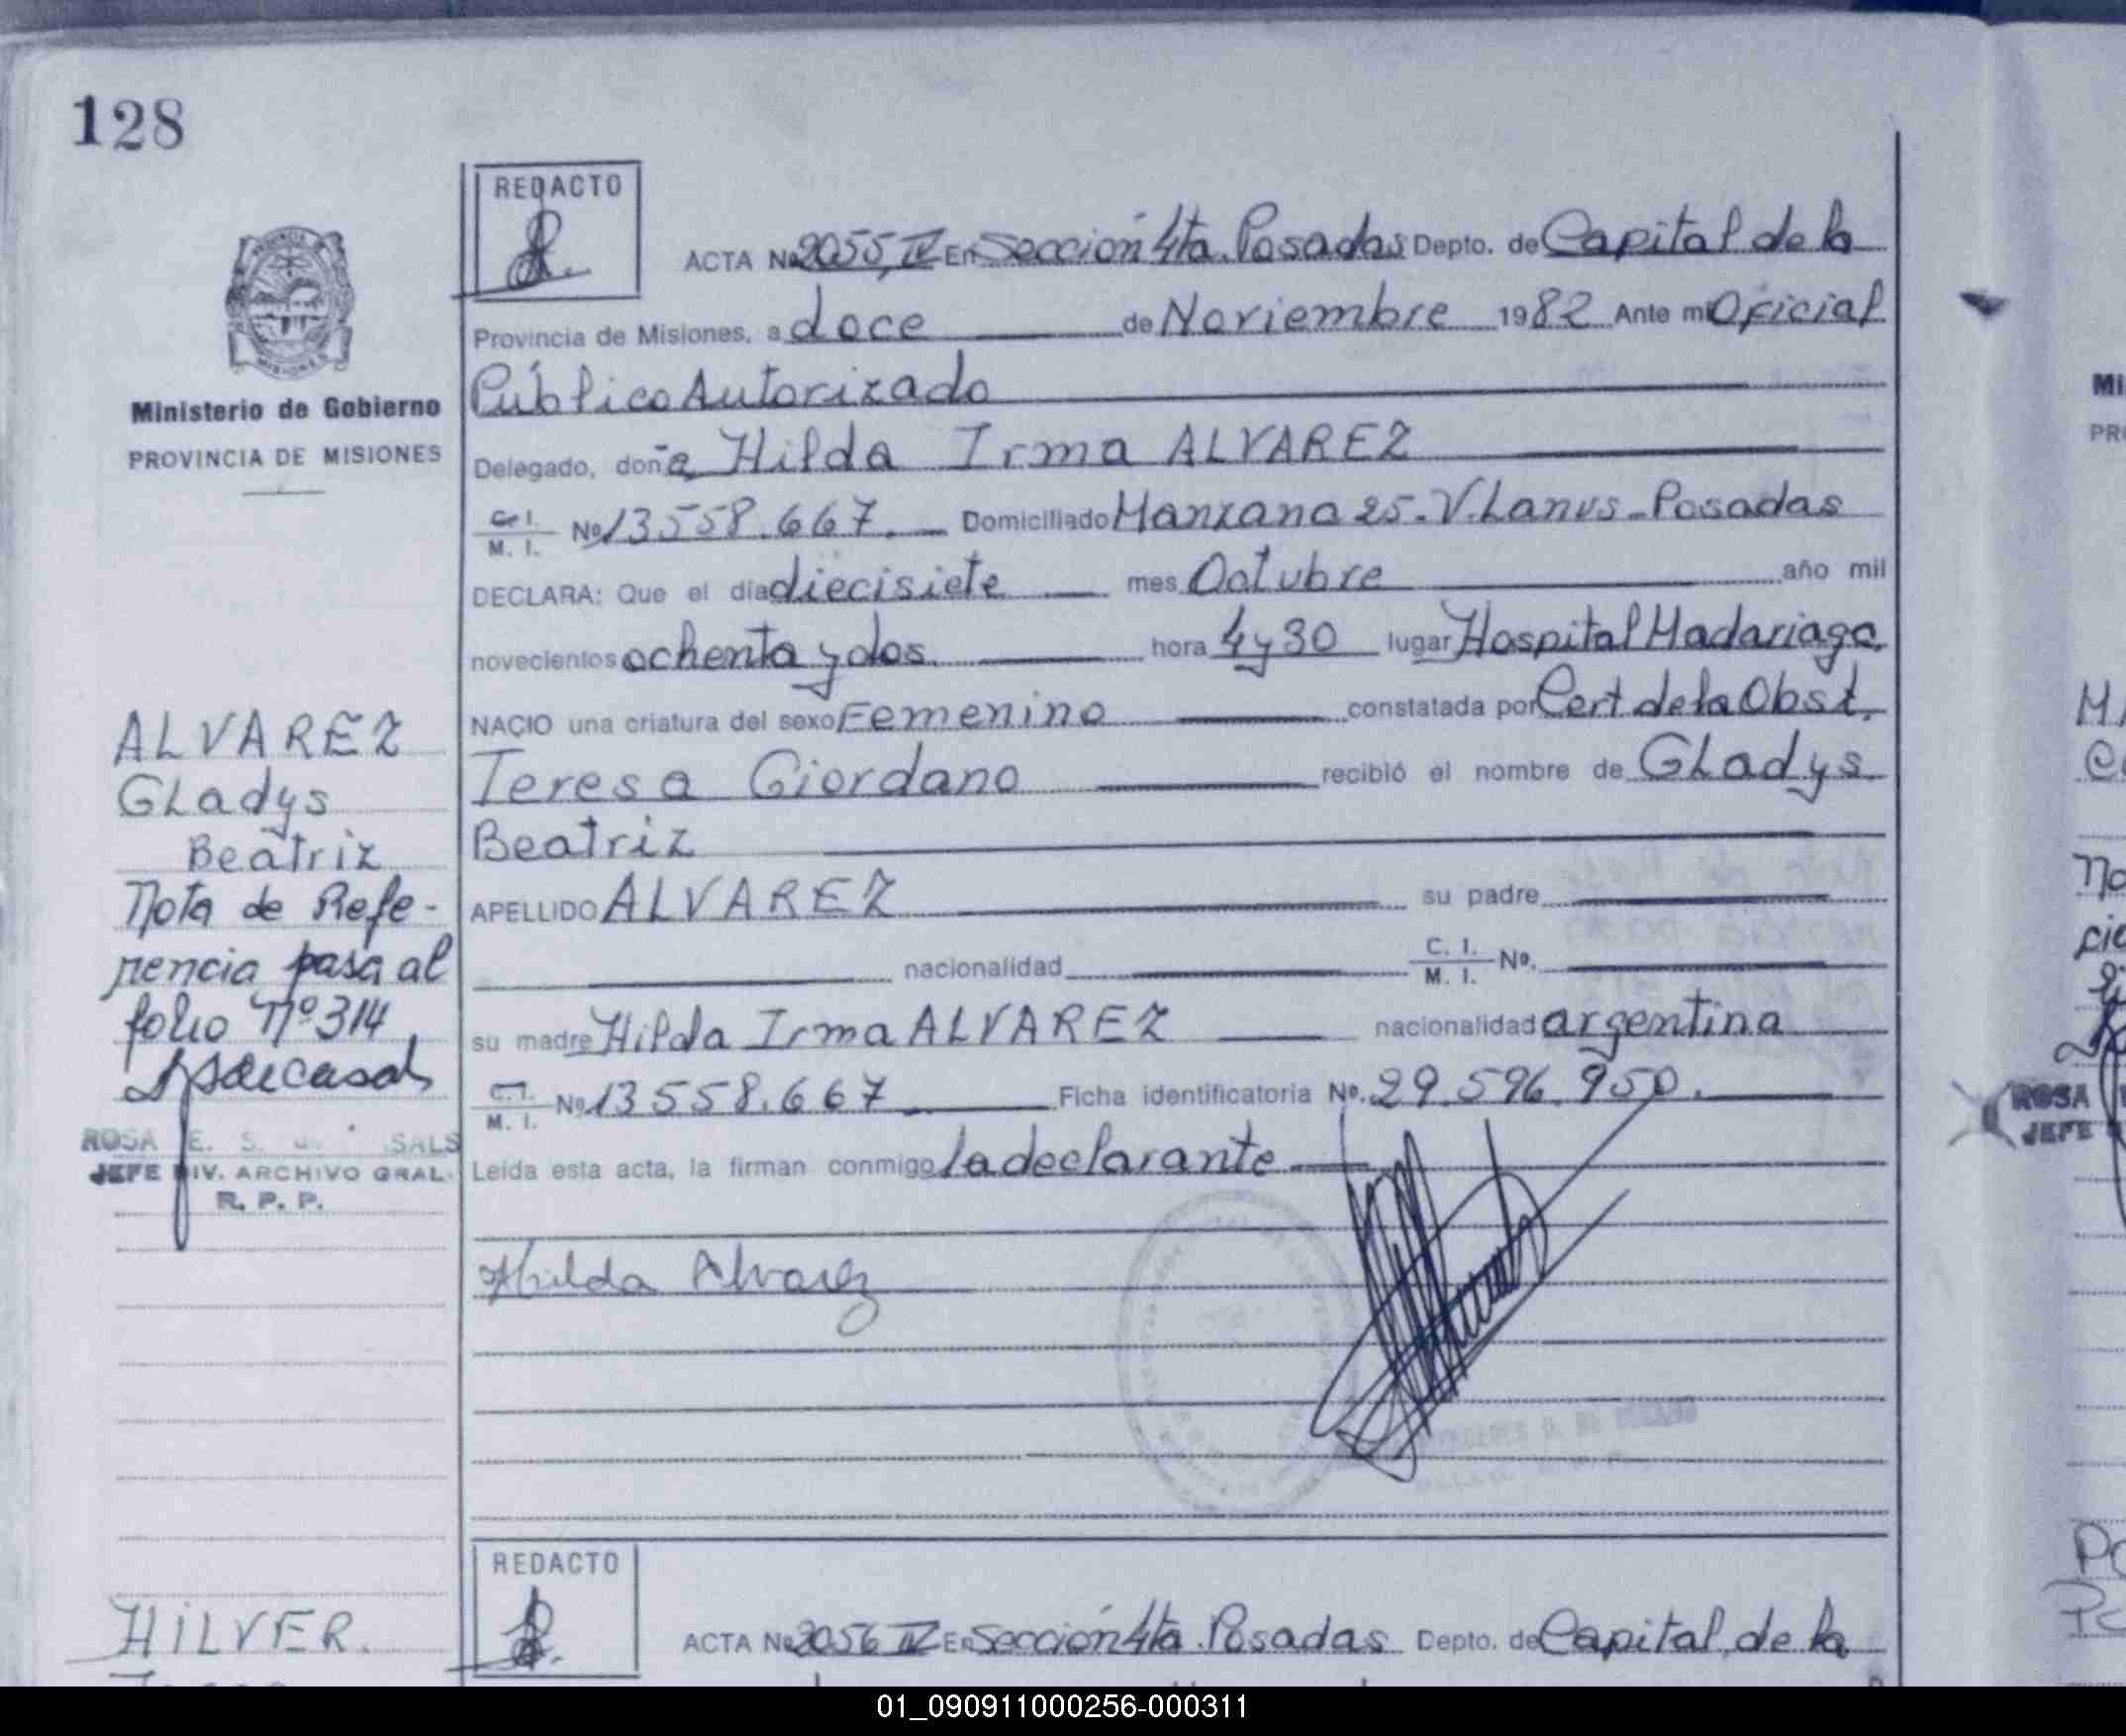 128
REDACTO
ACTA Nº 2055, IV En Sección 4ta. Posadas Depto. de Capital de la
Provincia de Misiones, a doce de Noviembre 1982 Ante mi Oficial
Ministerio de Gobierno
Público Autorizado
PROVINCIA DE MISIONES
Delegado, doña Hilda Irma ALVAREZ
C. I. M. I. Nº 13558.667. Domiciliado Manzana 25-V.Lanus-Posadas
DECLARA: Que el día diecisiete mes Octubre año mil
novecientos ochenta y dos. hora 4 y 30 lugar Hospital Madariaga.
NACIO una criatura del sexo Femenino constatada por Cert de la Obst.
Teresa Giordano recibió el nombre de Gladys
Beatriz
APELLIDO ALVAREZ su padre
nacionalidad C. I. M. I. Nº.
su madre Hilda Irma ALVAREZ nacionalidad argentina
C. I. M. I. Nº 13558.667 Ficha identificatoria Nº. 29.596.950.
Leída esta acta, la firman conmigo la declarante
Hilda Alvarez
ALVAREZ
Gladys
Beatriz
Nota de Refe-
rencia pasa al
folio Nº 314
ROSA E. S. SALS
JEFE DIV. ARCHIVO GRAL.
R. P. P.
REDACTO
HILVER.
ACTA Nº 2056 IV En Sección 4ta. Posadas Depto. de Capital, de la
Mi
PR
ROSA
JEFE
01_090911000256-000311